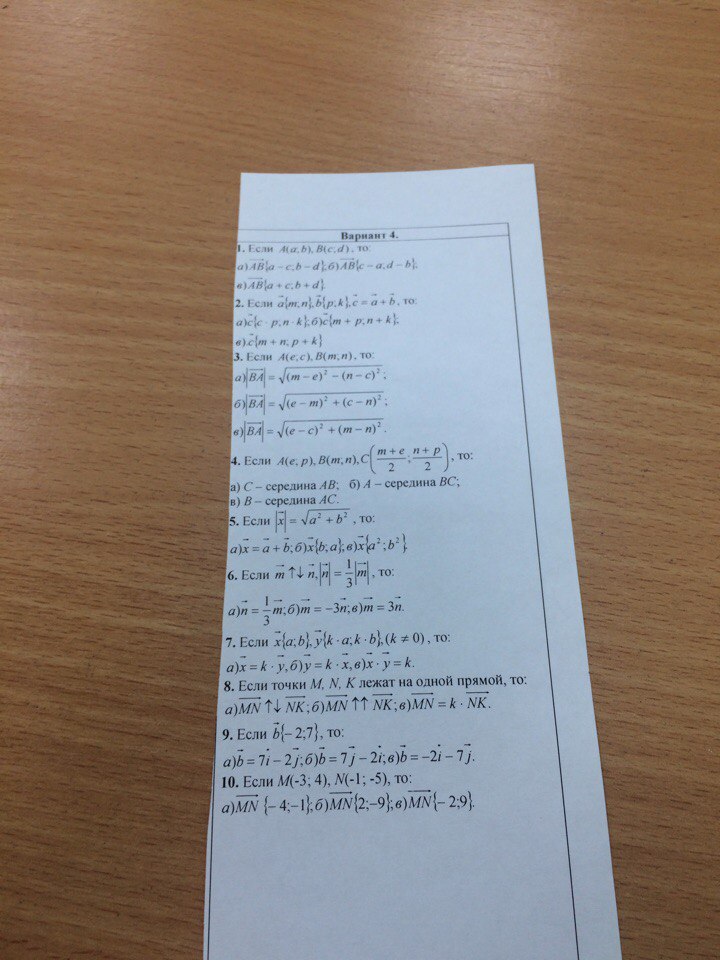 Вариант 4.
1. Если A(a; b), B(c; d), то:
а) $\overrightarrow{AB}\{a-c; b-d\}$; б) $\overrightarrow{AB}\{c-a, d-b\}$;
в) $\overrightarrow{AB}\{a+c; b+d\}$.
2. Если $\vec{a}\{m; n\}, \vec{b}\{p; k\}, \vec{c} = \vec{a} + \vec{b}$, то:
а) $\vec{c}\{c \cdot p; n \cdot k\}$; б) $\vec{c}\{m+p; n+k\}$;
в) $\vec{c}\{m+n; p+k\}$
3. Если A(e; c), B(m; n), то:
а) $|\overrightarrow{BA}| = \sqrt{(m-e)^2 - (n-c)^2}$;
б) $|\overrightarrow{BA}| = \sqrt{(e-m)^2 + (c-n)^2}$;
в) $|\overrightarrow{BA}| = \sqrt{(e-c)^2 + (m-n)^2}$.
4. Если $A(e; p), B(m; n), C\left(\frac{m+e}{2}; \frac{n+p}{2}\right)$, то:
а) C – середина AB; б) A – середина BC;
в) B – середина AC.
5. Если $|\vec{x}| = \sqrt{a^2 + b^2}$, то:
а) $\vec{x} = \vec{a} + \vec{b}$; б) $\vec{x}\{b; a\}$; в) $\vec{x}\{a^2; b^2\}$.
6. Если $\vec{m} ↑↓ \vec{n}, |\vec{n}| = \frac{1}{3}|\vec{m}|$, то:
а) $\vec{n} = \frac{1}{3}\vec{m}$; б) $\vec{m} = -3\vec{n}$; в) $\vec{m} = 3\vec{n}$.
7. Если $\vec{x}\{a; b\}, \vec{y}\{k \cdot a; k \cdot b\}, (k \neq 0)$, то:
а) $\vec{x} = k \cdot \vec{y}$, б) $\vec{y} = k \cdot \vec{x}$, в) $\vec{x} \cdot \vec{y} = k$.
8. Если точки M, N, K лежат на одной прямой, то:
а) $\overrightarrow{MN} ↑↓ \overrightarrow{NK}$; б) $\overrightarrow{MN} ↑↑ \overrightarrow{NK}$; в) $\overrightarrow{MN} = k \cdot \overrightarrow{NK}$.
9. Если $\vec{b}\{-2; 7\}$, то:
а) $\vec{b} = 7\vec{i} - 2\vec{j}$; б) $\vec{b} = 7\vec{j} - 2\vec{i}$; в) $\vec{b} = -2\vec{i} - 7\vec{j}$.
10. Если M(-3; 4), N(-1; -5), то:
а) $\overrightarrow{MN}\{-4; -1\}$; б) $\overrightarrow{MN}\{2; -9\}$; в) $\overrightarrow{MN}\{-2; 9\}$.